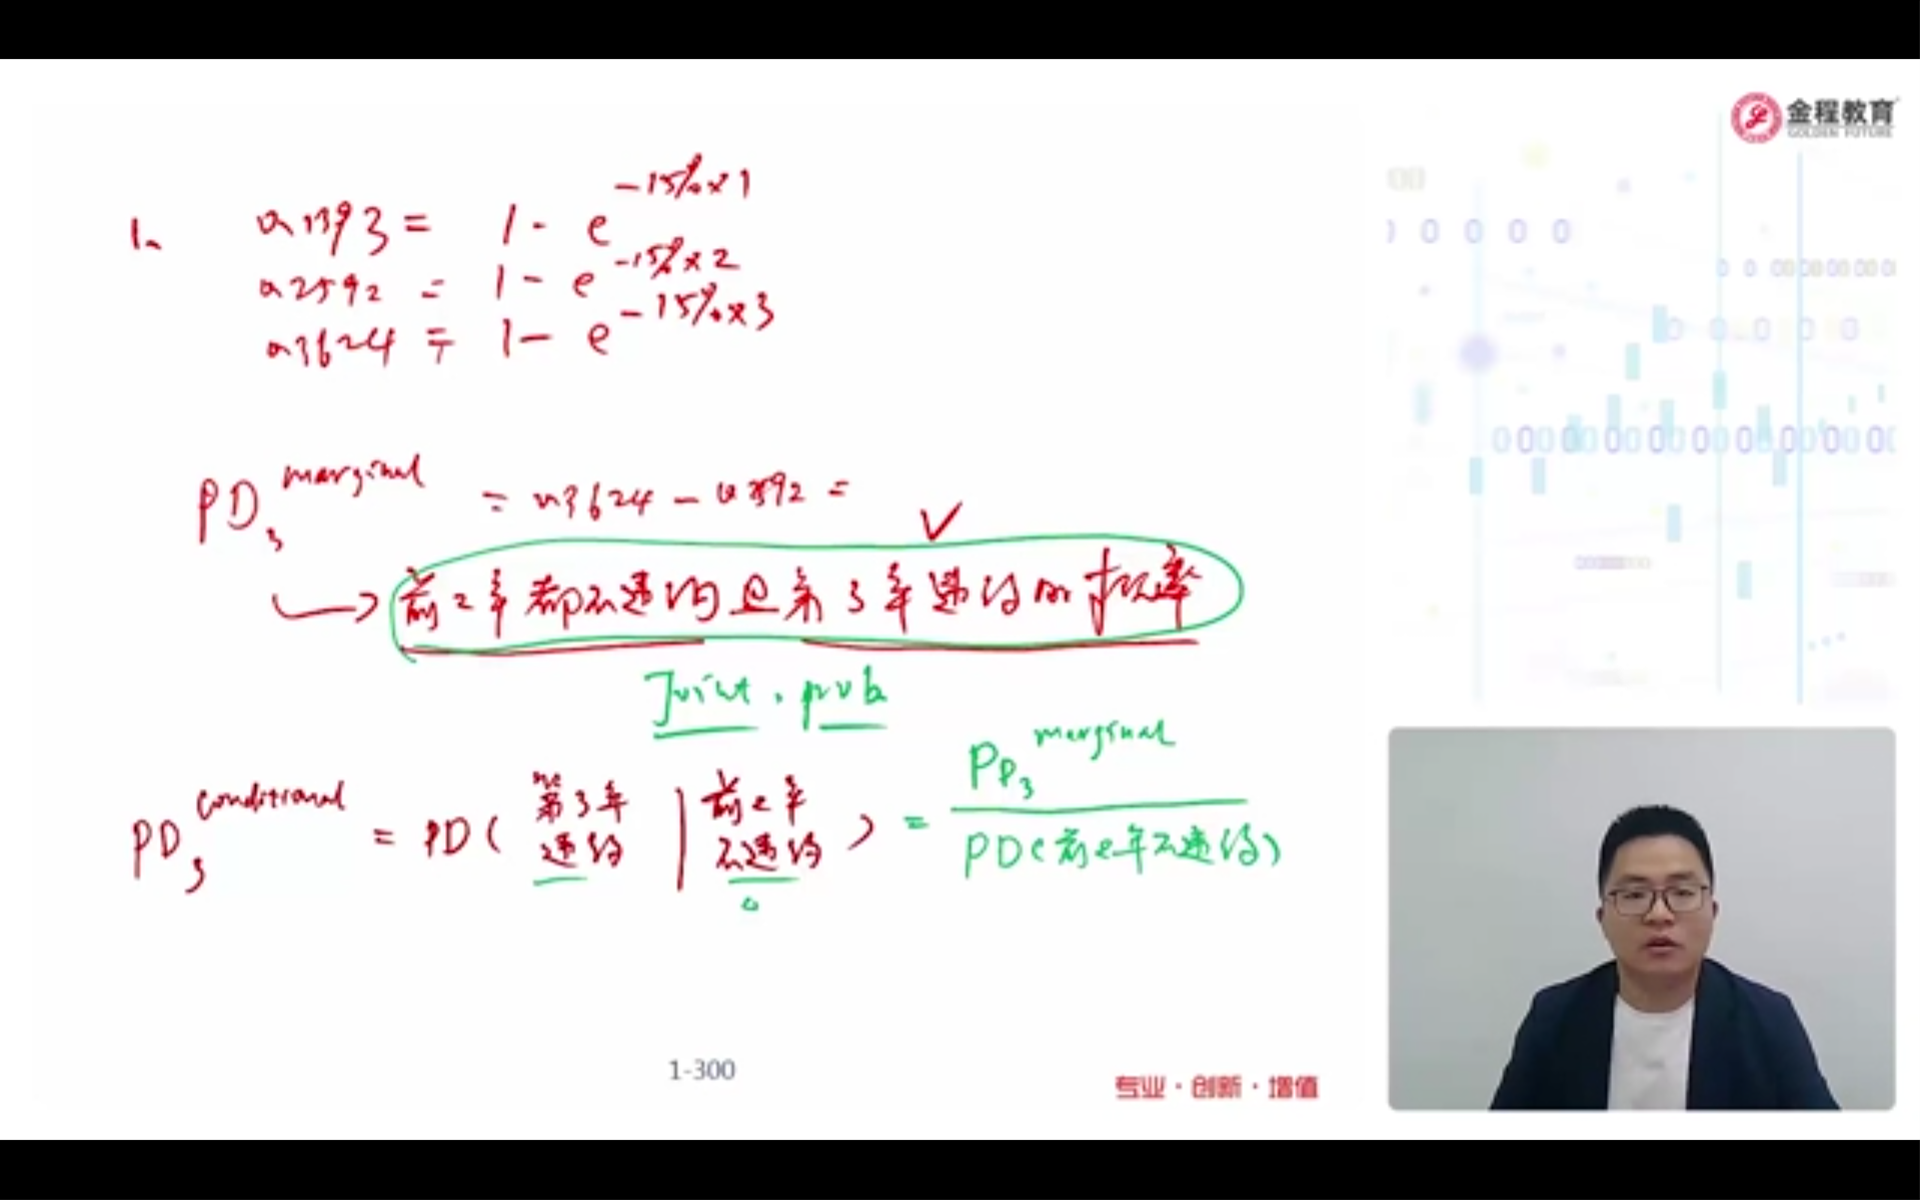 金程教育
GOLDEN FUTURE
1. 0.1393 = 1 - e^{-15%×1}
0.2592 = 1 - e^{-15%×2}
0.3624 = 1 - e^{-15%×3}
PD₃^{marginal} = 0.3624 - 0.2592 =
→ 前2年都不违约且第3年违约的概率 ✓
Joint. prob
PD₃^{conditional} = PD( 第3年违约 | 前2年不违约 ) = PD₃^{marginal} / PD(前2年不违约)
1-300
专业·创新·增值